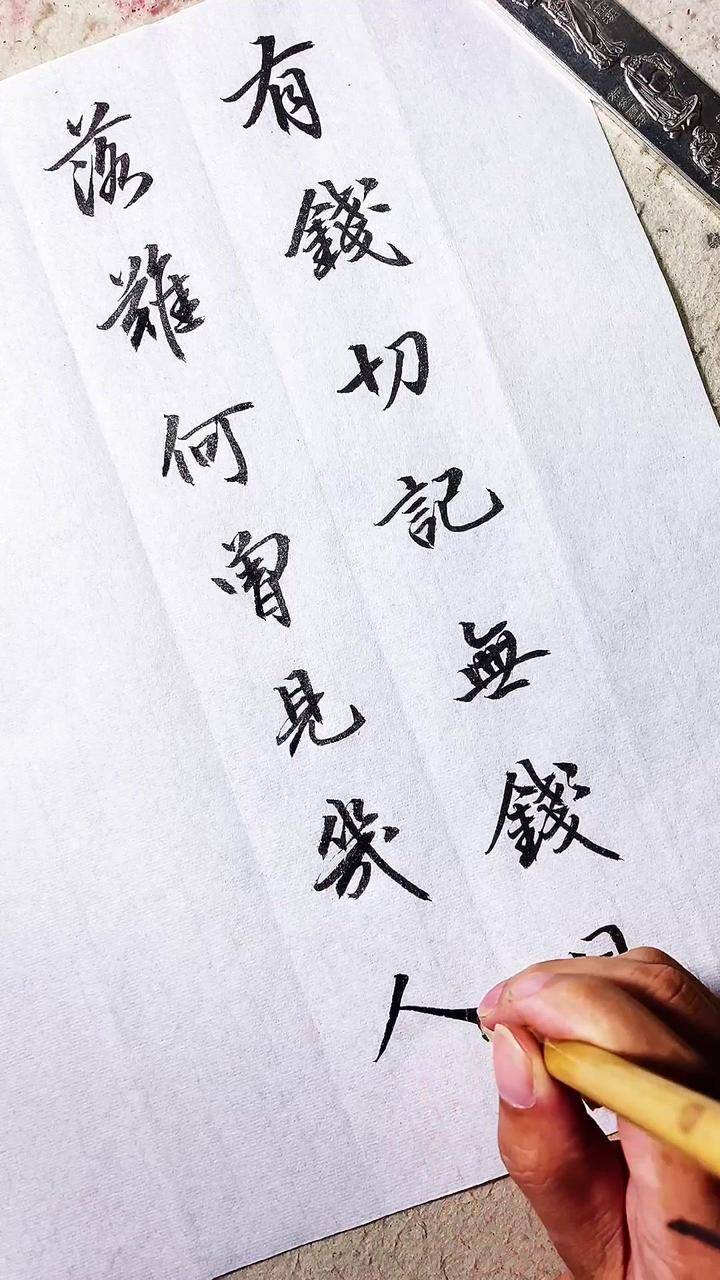 有錢切記無錢
落難何曾見幾人